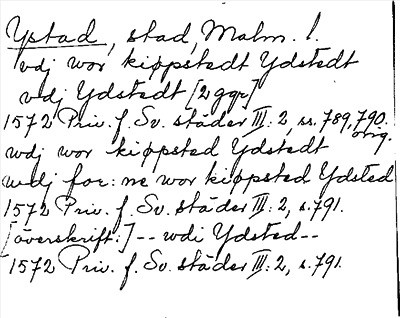 Ystad, stad, Malm. l.
vdj wor kiøpstedt Ydstedt
vdj Ydstedt [2 ggr]
1572 Priv. f. Sv. städer III: 2, ss. 789, 790.
orig.
wdj wor kiøpsted Ydstedt
wdj for:ne wor kiøpsted Ydsted
1572 Priv. f. Sv. städer III: 2, s. 791.
[överskrift:] -- wdi Ydsted --
1572 Priv. f. Sv. städer III: 2, s. 791.